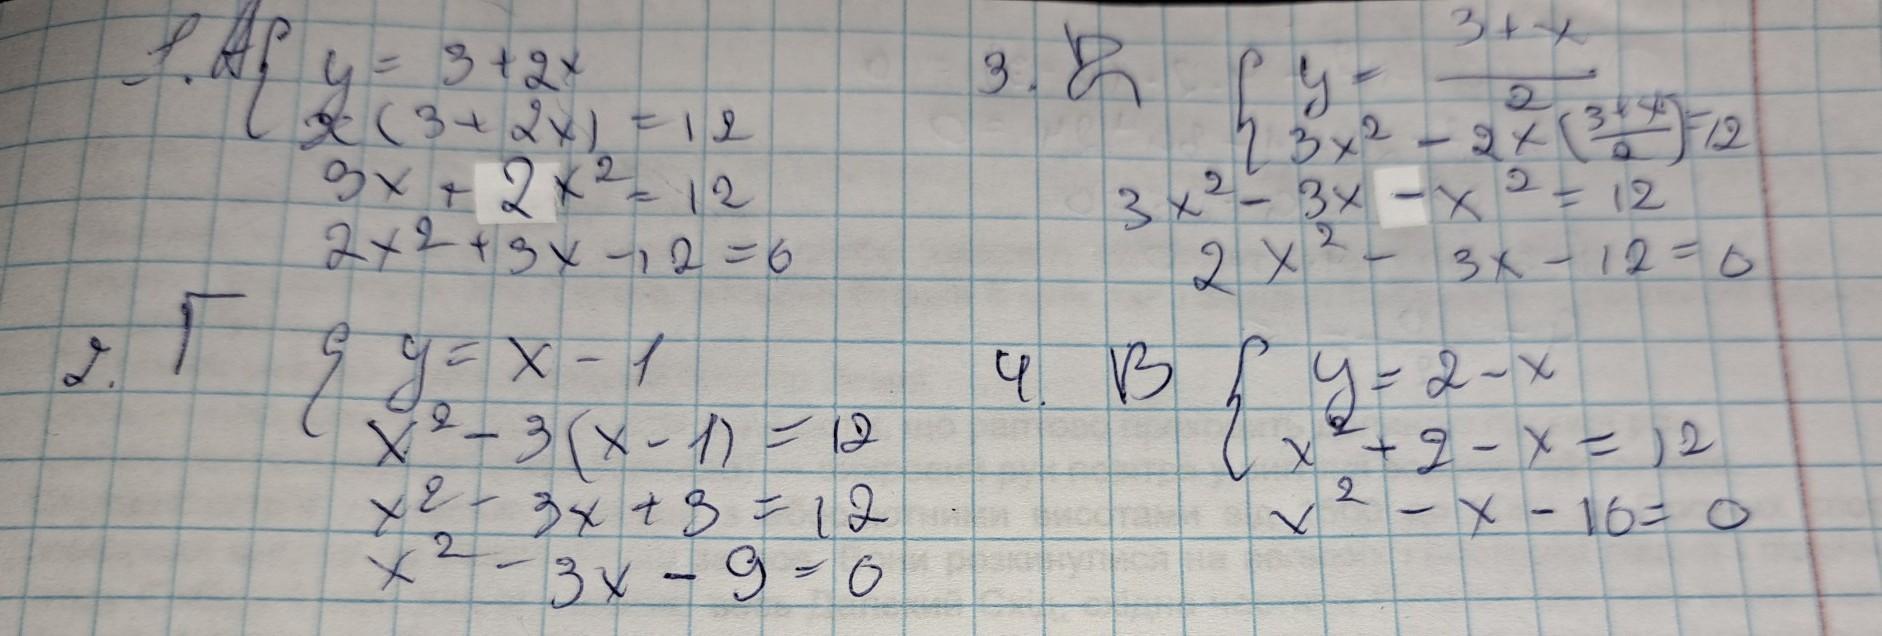 1. А { y = 3 + 2x
x(3 + 2x) = 12
3x + 2x² = 12
2x² + 3x - 12 = 0
2. Г { y = x - 1
x² - 3(x - 1) = 12
x² - 3x + 3 = 12
x² - 3x - 9 = 0
3. Б { y = (3 + x)/2
3x² - 2x((3 + x)/2) = 12
3x² - 3x - x² = 12
2x² - 3x - 12 = 0
4. В { y = 2 - x
x² + 2 - x = 12
x² - x - 10 = 0